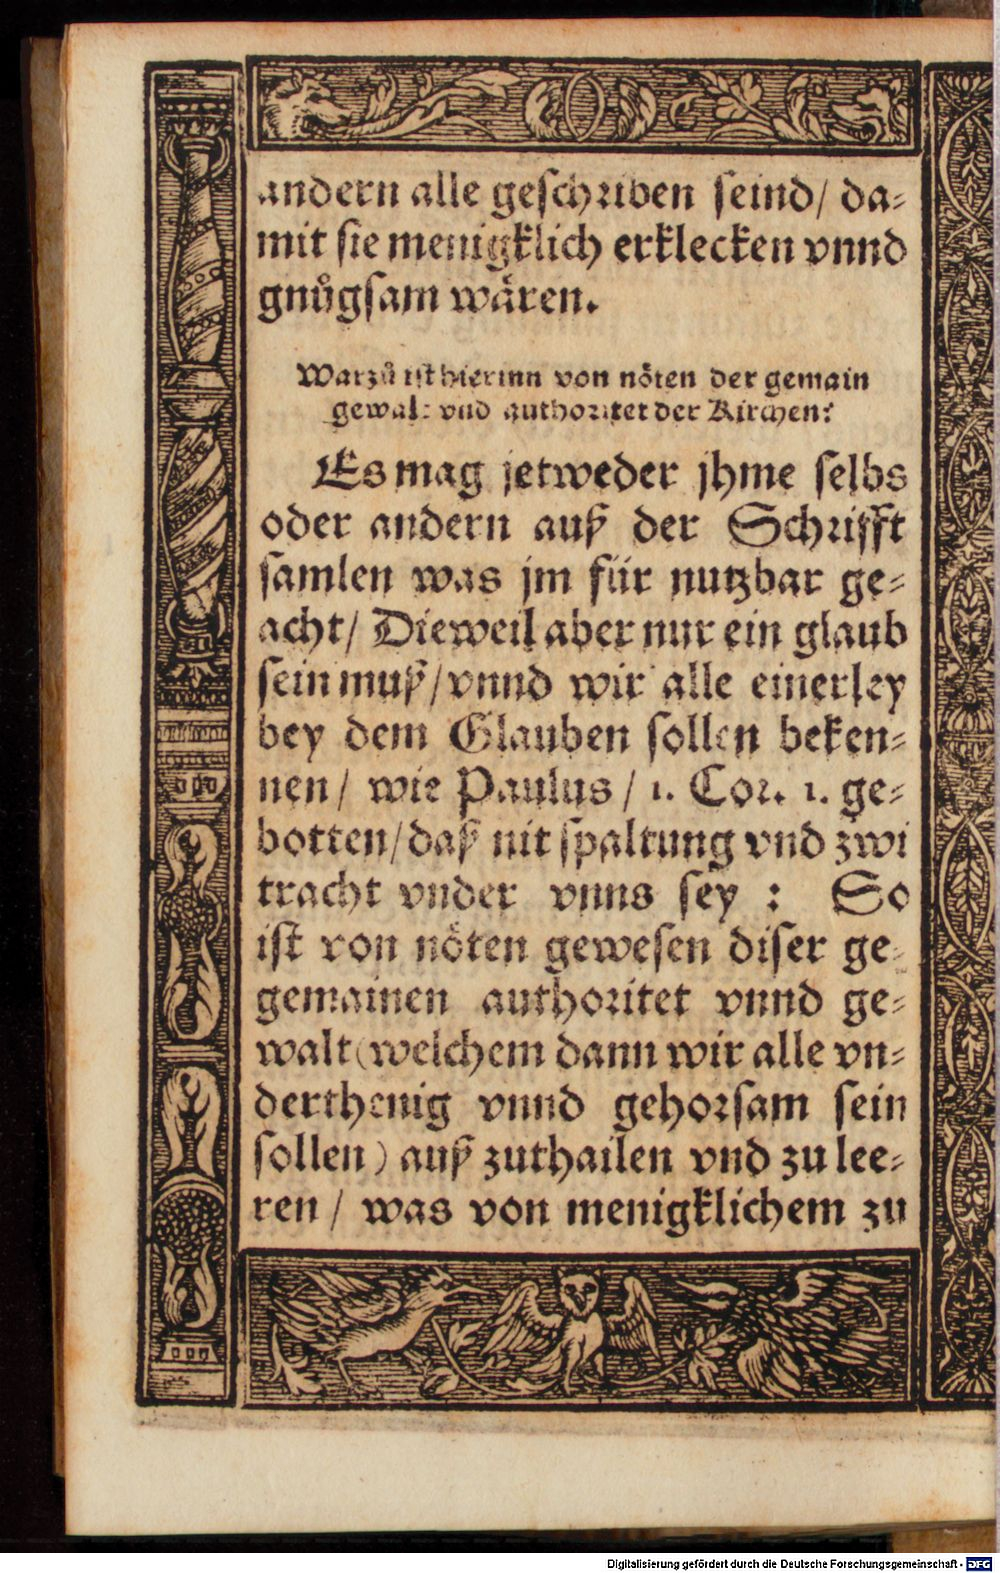 andern alle geschriben seind/ da-
mit sie menigklich erklecken vnnd
gnůgsam wären.
Warzů ist hierinn von nöten der gemain
gewalt vnd authoritet der Kirchen?
Es mag jetweder jhme selbs
oder andern auß der Schrifft
samlen was jm für nutzbar ge-
acht/ Dieweil aber nur ein glaub
sein muß/ vnnd wir alle einerley
bey dem Glauben sollen beken-
nen/ wie Paulus/ 1. Cor. 1. ge-
botten/ daß nit spaltung vnd zwi
tracht vnder vnns sey : So
ist von nöten gewesen diser ge-
gemainen authoritet vnnd ge-
walt (welchem dann wir alle vn-
derthenig vnnd gehorsam sein
sollen) auß zuthailen vnd zu lee-
ren/ was von menigklichem zu
Digitalisierung gefördert durch die Deutsche Forschungsgemeinschaft - DFG